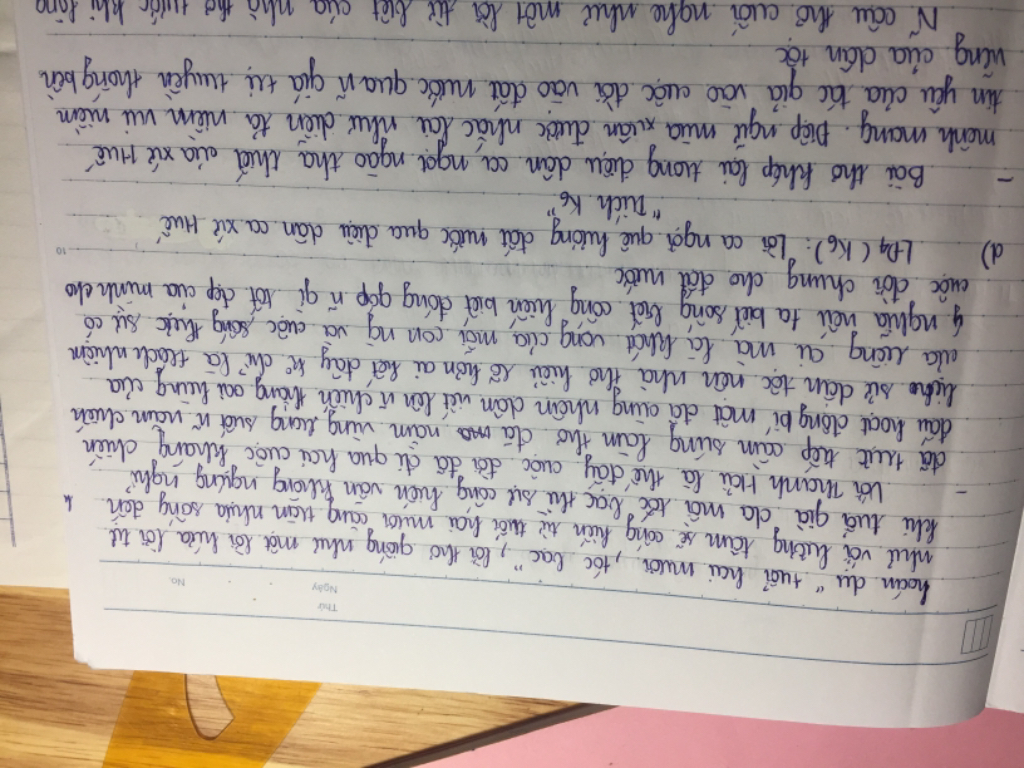 Thứ
Ngày No.
hoán dụ "tuổi hai mươi, tóc bạc", lời thơ giống như một lời hứa lời tự
như với lương tâm sẽ cống hiến từ tuổi hai mươi căng tràn nhựa sống đến
khi tuổi già da mồi tóc bạc thì sự cống hiến vẫn không ngừng nghỉ
- Với Thanh Hải là thế đấy cuộc đời đã đi qua hai cuộc kháng chiến
đã trực tiếp cầm súng làm thơ đã nằm vùng trong suốt ~ năm chiến
đấu hoạt động bí mật đã cùng nhân dân viết lên ~ chiến thắng oai hùng của
lịch sử dân tộc nên nhà thơ hiểu rõ hơn ai hết đây k° chỉ là trách nhiệm
của riêng ai mà là khát vọng của mỗi con ng và cuộc sống thực sự có
ý nghĩa nếu ta biết sống biết cống hiến biết đóng góp ~ gì tốt đẹp của mình cho
cuộc đời chung cho đất nước
10
d) LĐ4 (K6): Lời ca ngợi quê hương đất nước qua điệu dân ca xứ Huế
"Trích K6"
- Bài thơ khép lại trong điệu dân ca ngọt ngào tha thiết của xứ Huế
mênh mang. Điệp ngữ mùa xuân được nhắc lại như diễn tả niềm vui niềm
tin yêu của tác giả vào cuộc đời vào đất nước qua ~ giá trị truyền thống bền
vững của dân tộc
~ câu thơ cuối nghe như một lời từ biệt của nhà thơ trước khi